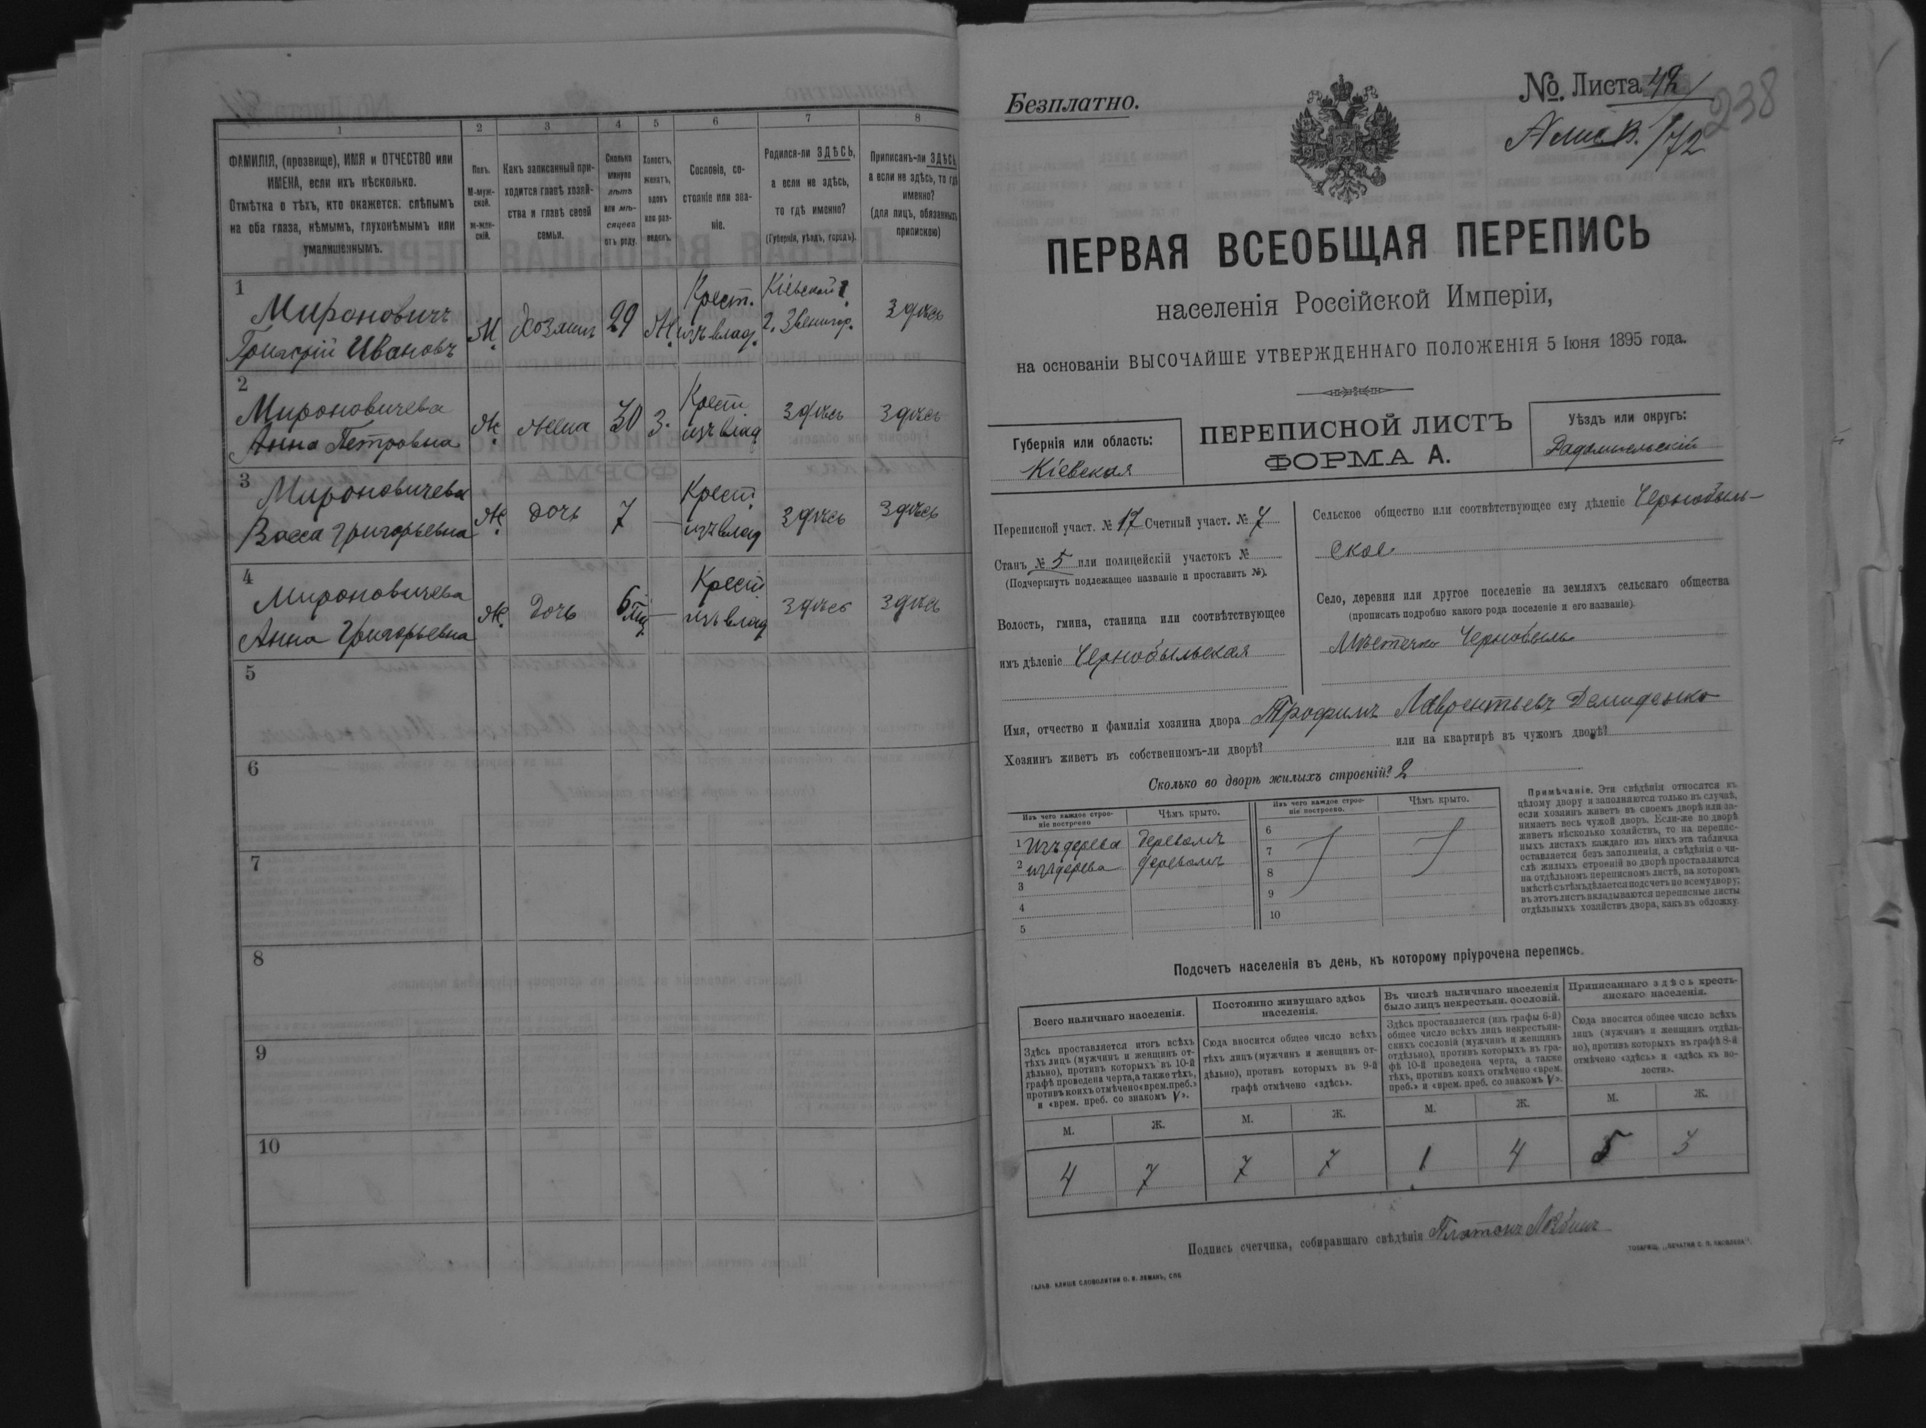 1 2 3 4 5 6 7 8
ФАМИЛІЯ, (прозвище), ИМЯ и ОТЧЕСТВО или
ИМЕНА, если ихъ нѣсколько.
Отмѣтка о тѣхъ, кто окажется: слѣпымъ
на оба глаза, нѣмымъ, глухонѣмымъ или
умалишеннымъ.
Полъ.
М-муж-
ской.
ж-жен-
скій.
Какъ записанный при-
ходится главѣ хозяй-
ства и главѣ своей
семьи.
Сколько
минуло
лѣтъ
или мѣ-
сяцевъ
отъ роду.
Холостъ,
женатъ,
вдовъ
или раз-
веденъ.
Сословіе, со-
стояніе или зва-
ніе.
Родился-ли ЗДѢСЬ,
а если не здѣсь,
то гдѣ именно?
(Губернія, уѣздъ, городъ).
Приписанъ-ли ЗДѢСЬ,
а если не здѣсь, то гдѣ
именно?
(для лицъ, обязанныхъ
припискою)
1
Мироновичъ
Григорій Ивановъ
М.
хозяинъ
29
Ж.
Крест.
изъ влад.
Кіевской
г. Звенигор.
здѣсь
2
Мироновичева
Анна Петровна
Ж.
жена
30
З.
Крест.
изъ влад
здѣсь
здѣсь
3
Мироновичева
Васса Григорьевна
Ж.
дочь
7
—
Крест
изъ влад
здѣсь
здѣсь
4
Мироновичева
Анна Григорьевна
Ж.
дочь
6 мц
—
Крест
изъ влад
здѣсь
здѣсь
5
6
7
8
9
10
Безплатно.
№. Листа 42
238
172
ПЕРВАЯ ВСЕОБЩАЯ ПЕРЕПИСЬ
населенія Россійской Имперіи,
на основаніи ВЫСОЧАЙШЕ УТВЕРЖДЕННАГО ПОЛОЖЕНІЯ 5 Іюня 1895 года.
Губернія или область:
Кіевская
ПЕРЕПИСНОЙ ЛИСТЪ
ФОРМА А.
Уѣздъ или округъ:
Радомысльскій
Переписной участ. № 17 Счетный участ. № 7
Станъ № 5 или полицейскій участокъ №
(Подчеркнуть подлежащее названіе и проставить №).
Волость, гмина, станица или соотвѣтствующее
имъ дѣленіе Чернобыльская
Сельское общество или соотвѣтствующее ему дѣленіе Чернобыль-
ское
Село, деревня или другое поселеніе на земляхъ сельскаго общества
(прописать подробно какого рода поселеніе и его названіе).
Мѣстечко Чернобыль
Имя, отчество и фамилія хозяина двора Трофимъ Лаврентьевъ Демиденко
Хозяинъ живетъ въ собственномъ-ли дворѣ? или на квартирѣ въ чужомъ дворѣ?
Сколько во дворѣ жилыхъ строеній? 2
Изъ чего каждое строе-
ніе построено
Чѣмъ крыто.
Изъ чего каждое строе-
ніе построено.
Чѣмъ крыто.
1 изъ дерева деревомъ
2 изъ дерева деревомъ
3
4
5
6
7
8
9
10
Примѣчаніе. Эти свѣдѣнія относятся къ
цѣлому двору и заполняются только въ случаѣ,
если хозяинъ живетъ въ своемъ дворѣ или за-
нимаетъ весь чужой дворъ. Если-же во дворѣ
живетъ нѣсколько хозяйствъ, то на перепис-
ныхъ листахъ каждаго изъ нихъ эта табличка
оставляется безъ заполненія, а свѣдѣнія о чи-
слѣ жилыхъ строеній во дворѣ проставляются
на отдѣльномъ переписномъ листѣ, на которомъ
вмѣстѣ съ тѣмъ дѣлается подсчетъ по всему двору;
въ этотъ листъ вкладываются переписные листы
отдѣльныхъ хозяйствъ двора, какъ въ обложку.
Подсчетъ населенія въ день, къ которому пріурочена перепись.
Всего наличнаго населенія.
Здѣсь проставляется итогъ всѣхъ
тѣхъ лицъ (мужчинъ и женщинъ от-
дѣльно), противъ которыхъ въ 10-й
графѣ проведена черта, а также тѣхъ,
противъ коихъ отмѣчено «врем. преб.»
и «врем. преб. со знакомъ V».
Постоянно живущаго здѣсь
населенія.
Сюда вносится общее число всѣхъ
тѣхъ лицъ (мужчинъ и женщинъ от-
дѣльно), противъ которыхъ въ 9-й
графѣ отмѣчено «здѣсь».
Въ числѣ наличнаго населенія
было лицъ некрестьян. сословій.
Здѣсь проставляется (изъ графы 6-й)
общее число всѣхъ лицъ некрестьян-
скихъ сословій (мужчинъ и женщинъ
отдѣльно), противъ которыхъ въ гра-
фѣ 10-й проведена черта, а также
тѣхъ, противъ коихъ отмѣчено «врем.
преб.» и «врем. преб. со знакомъ V».
Приписаннаго здѣсь кресть-
янскаго населенія.
Сюда вносится общее число всѣхъ
лицъ (мужчинъ и женщинъ отдѣль-
но), противъ которыхъ въ графѣ 8-й
отмѣчено «здѣсь» и «здѣсь въ во-
лости».
М. Ж. М. Ж. М. Ж. М. Ж.
4 7 7 7 1 4 5 3
Подпись счетчика, собиравшаго свѣдѣнія Платонъ
ГАЛЬВ. КЛИШЕ СЛОВОЛИТНИ О. И. ЛЕМАНЪ, СПБ